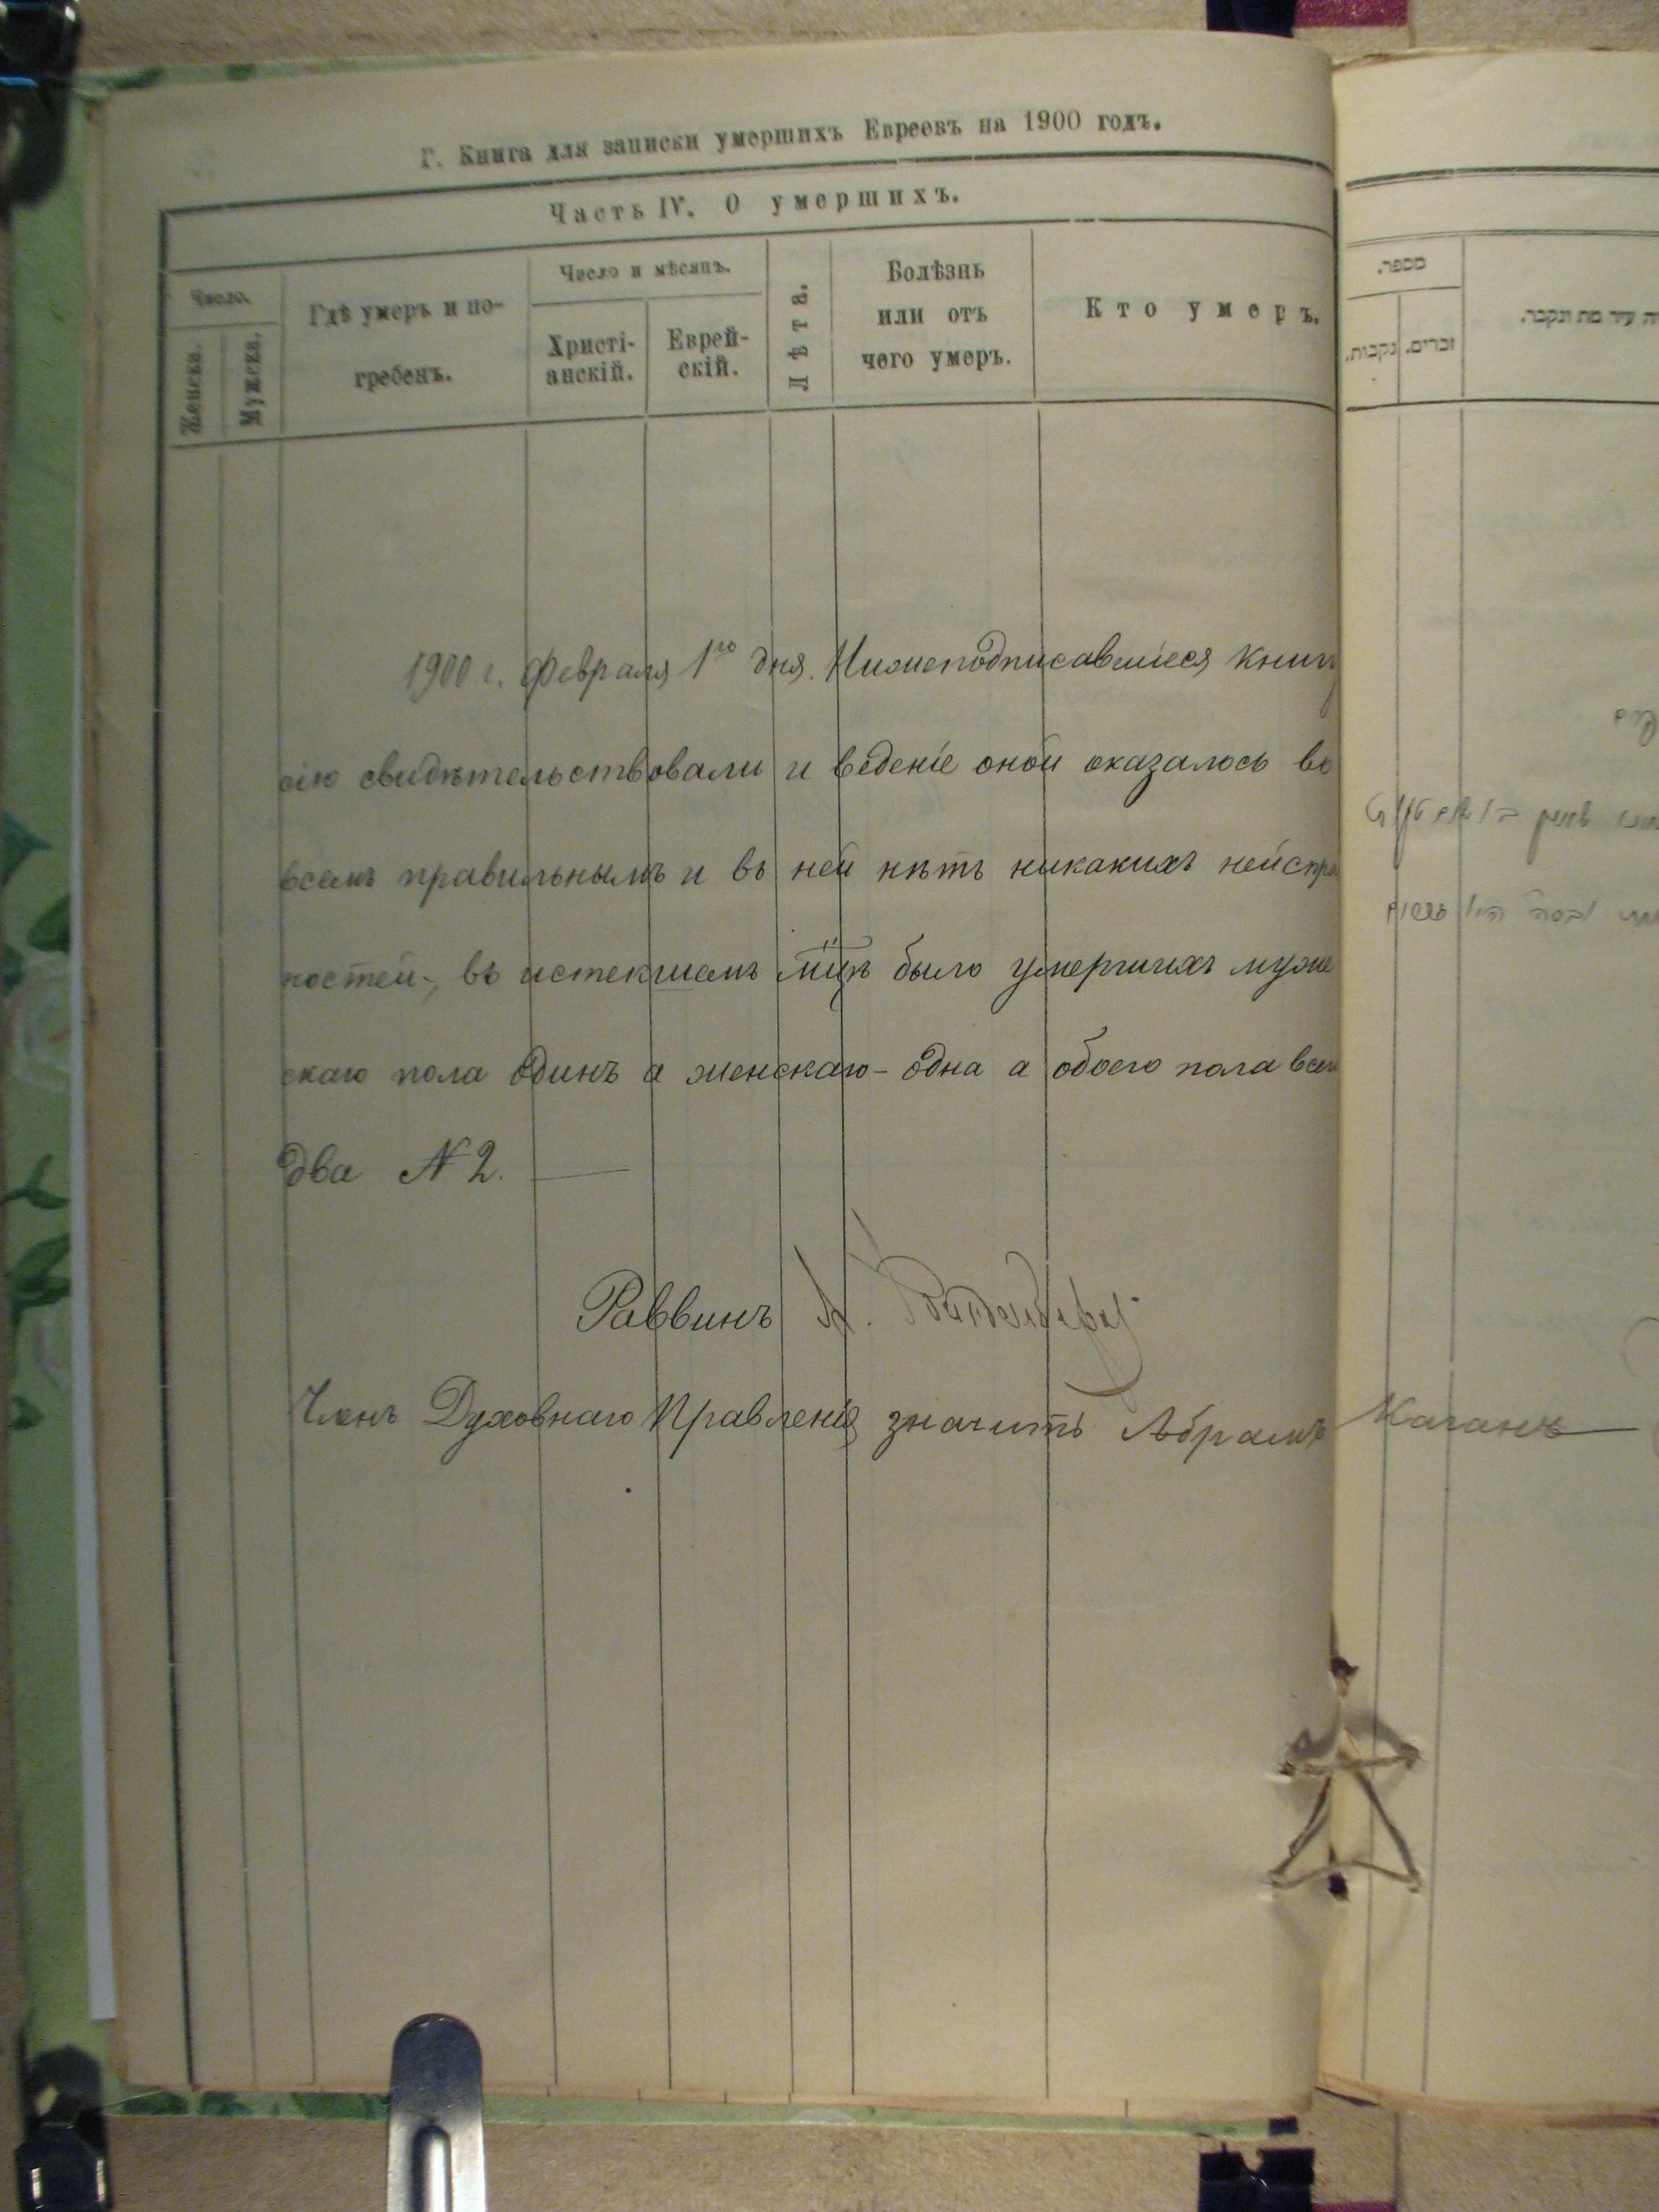 Г. Книга для записки умершихъ Евреевъ на 1900 годъ.
Часть IV. О умершихъ.
Число.
Женска.
Мужеска.
Гдѣ умеръ и по-
гребенъ.
Число и мѣсяцъ.
Христі-
анскій.
Еврей-
скій.
Лѣта.
Болѣзнь
или отъ
чего умеръ.
Кто умеръ.
1900 г. Февраля 1го дня. Нижеподписавшіеся книгу
сію свидѣтельствовали и веденіе оной оказалось во
всемъ правильнымъ и въ ней нѣтъ никакихъ неиспра
ностей, въ истекшемъ мцѣ было умершихъ муже
скаго пола одинъ а женскаго - одна а обоего пола всего
два N 2.
Раввинъ А.
Членъ Духовнаго Правленія значитъ Абрамъ Каганъ
מספר.
זכרים.
נקבות.
עיר מת ונקבר.